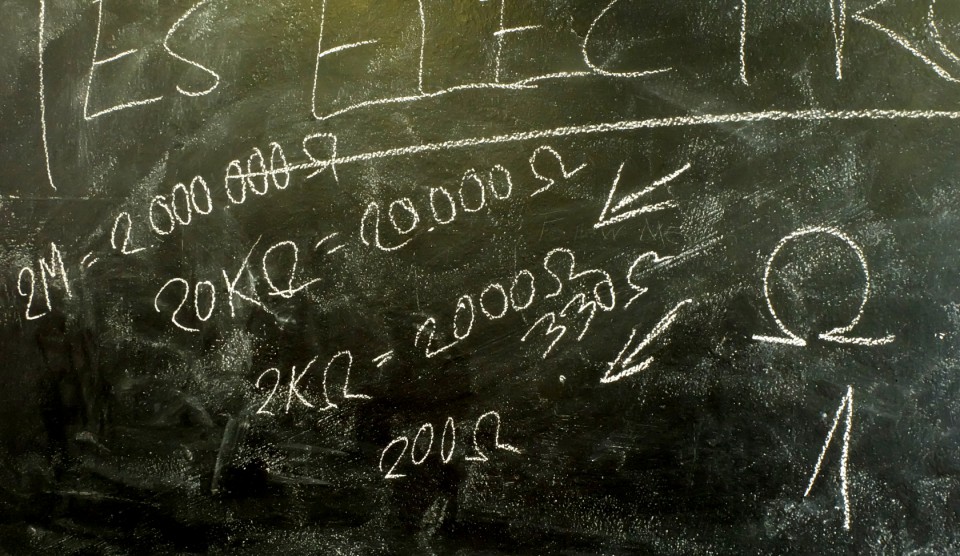 ES ELECTR
2M = 2000000Ω
20KΩ = 20.000Ω
2KΩ = 2000Ω
330Ω
200Ω
Ω
1